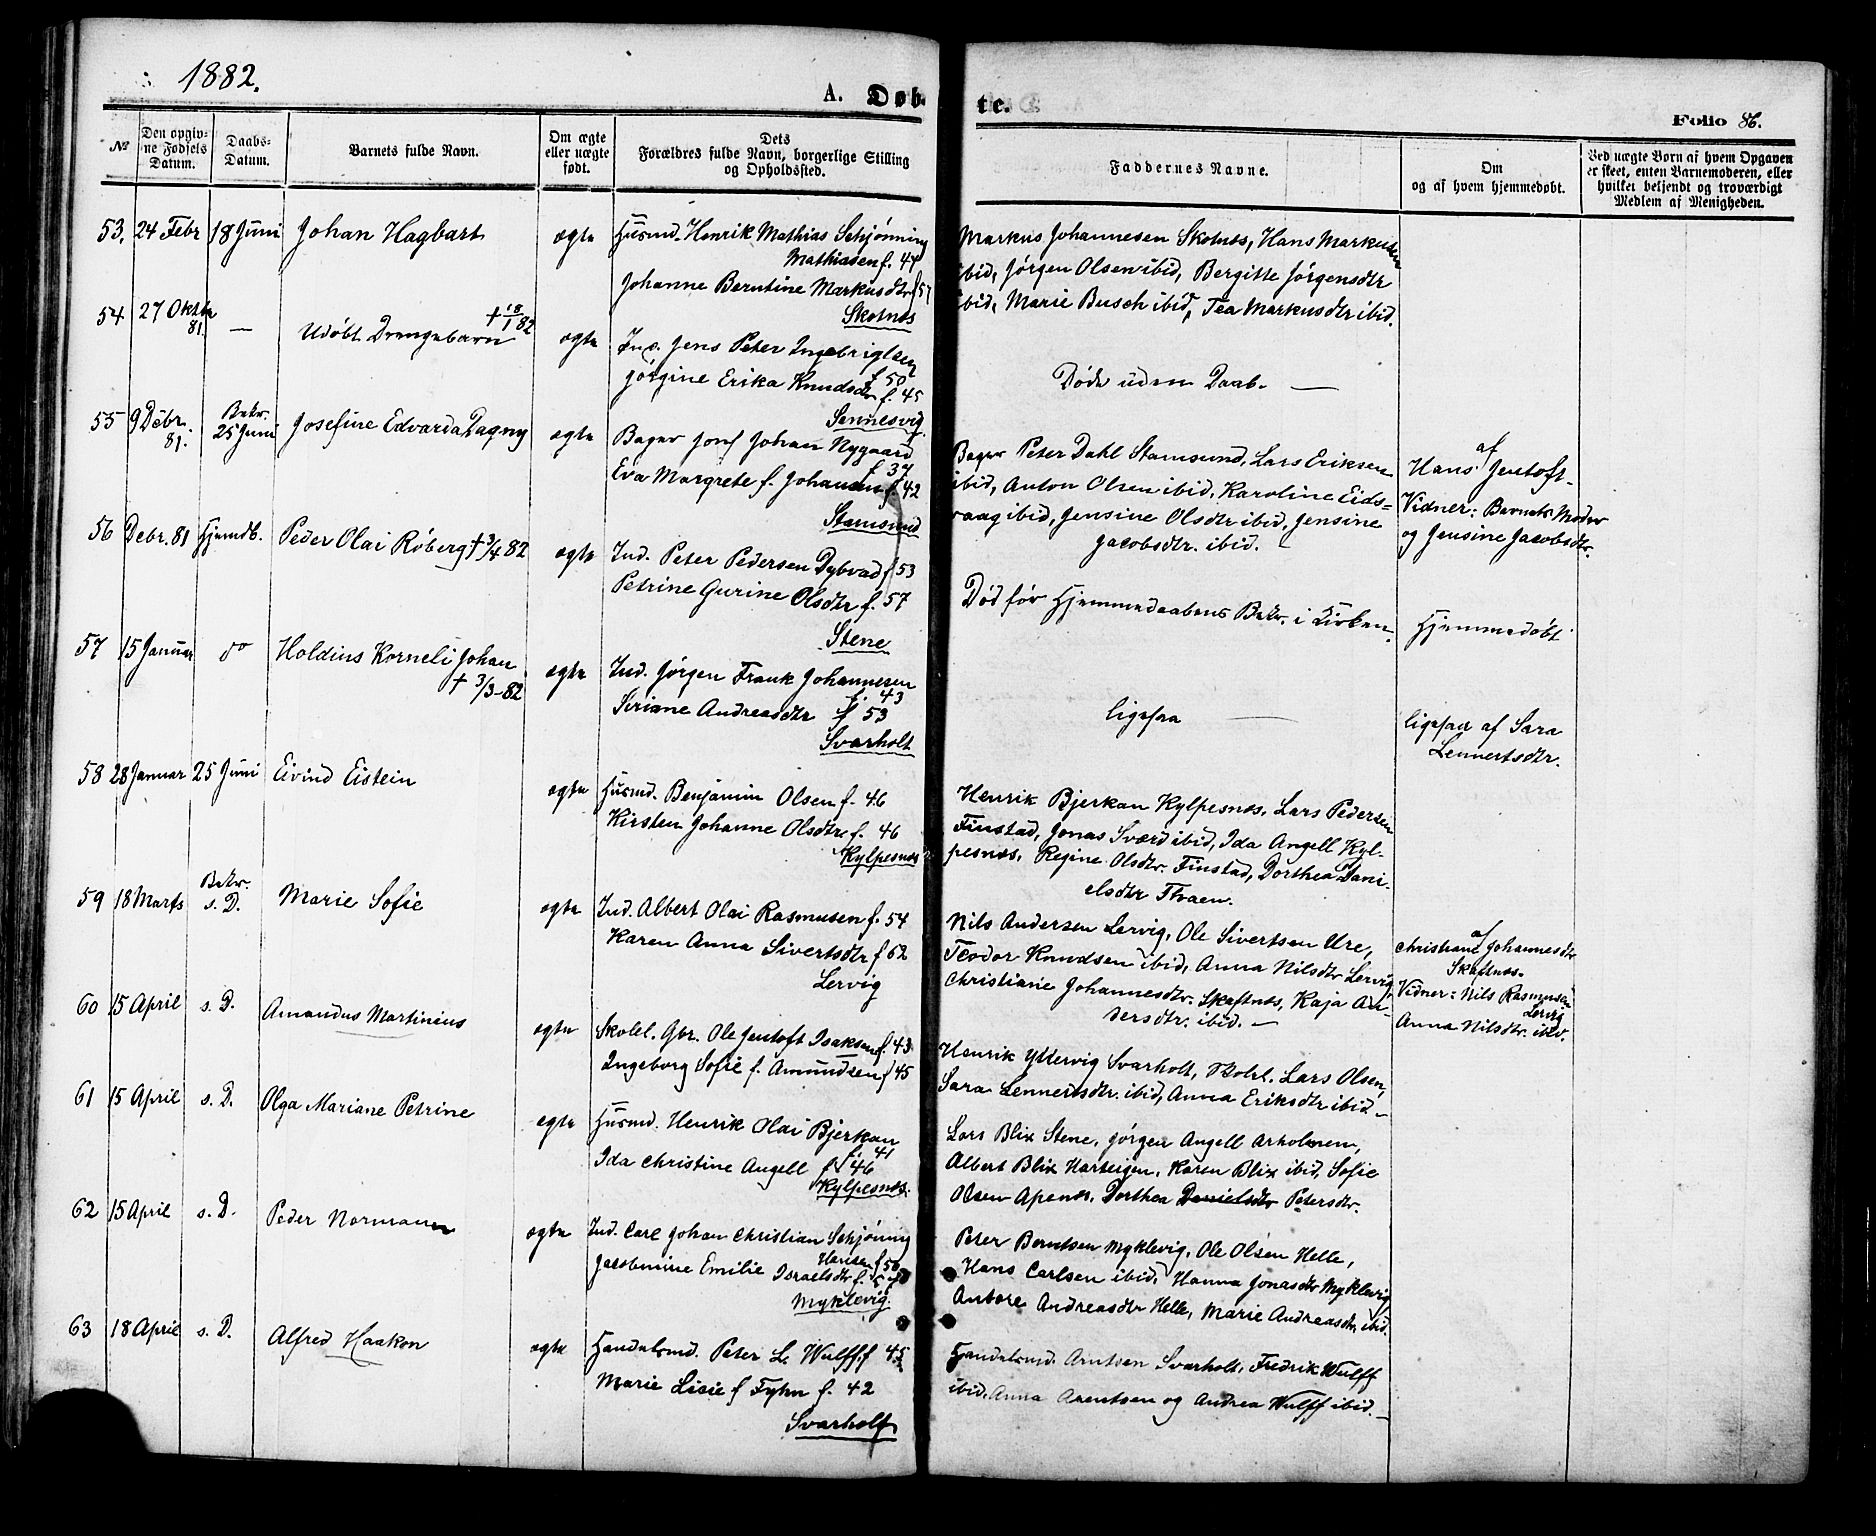 1882.
A. Døb-
te.
Folio 86.
№
Den opgiv-
ne Fødsels
Datum.
Daabs-
Datum.
Barnets fulde Navn.
Om ægte
eller uægte
født.
Dets
Forældres fulde Navn, borgerlige Stilling
og Opholdssted.
Faddernes Navne.
Om
og af hvem hjemmedøbt.
Ved uægte Børn af hvem Opgaven
er skeet, enten Barnemoderen, eller
hvilket bekjendt og troværdigt
Medlem af Menigheden.
53. 24 Febr 18 Juni Johan Hagbart ægte
Husmd. Henrik Mathias Schjønning
Mathiasen f. 44
Johanne Berntine Markusdtr f 57
Skotnes
Markus Johannesen Skotnes, Hans Markusen
ibid, Jørgen Olsen ibid, Bergitte Jørgensdtr
ibid, Marie Busch ibid, Tea Markusdtr ibid.
54 27 Oktbr
81. — Udøbt Drengebarn † 18/1 82 ægte
Ins. Jens Peter Ingebrigtsen
f 50
Jørgine Erika Knudsdtr f. 45
Sennesvig
Døde uden Daab. —
55 9 Debr.
81. Bekr.
25 Juni Josefine Edvarda Dagny ægte
Bager Jonf Johan Nygaard
f 37
Eva Margrete f. Johansen f. 42
Stamsund
Bager Peter Dahl Stamsund, Lars Eriksen
ibid, Anton Olsen ibid, Karoline Eids-
vaag ibid, Jensine Olsdtr ibid, Jensine
Jacobsdtr. ibid. —
af
Hans Jentoft-
Vidner: Barnets Moder
og Jensine Jacobsdtr.
56 Debr. 81 Hjemdb. Peder Olai Røberg † 3/4 82 ægte
Ind. Peter Pedersen Dybvad f 53
Petrine Gurine Olsdtr f. 57
Stene
Død før Hjemmedaabens Bekr. i Kirken.
Hjemmedøbt
57 15 Januar do Holdius Korneli Johan
† 3/3-82 ægte
Ind. Jørgen Frank Johannesen
f. 43
Siriane Andreasdtr f 53
Svarholt
ligesaa —
ligesaa af Sara
Lennertsdtr.
58 28 Januar 25 Juni Eivind Eistein ægte
Husmd. Benjamin Olsen f. 46
Kirsten Johanne Olsdtr f. 46
Kylpesnes
Henrik Bjerkan Kylpesnes, Lars Pedersen
Finstad, Jonas Sværd ibid, Ida Angell Kyl-
pesnes, Regine Olsdtr. Finstad, Dorthea Dani-
elsdtr Tkraen.
59 18 Marts Bekr.
s. D. Marie Sofie ægte
Ind. Albert Olai Rasmusen f. 54
Karen Anna Sivertsdtr f 62
Lervig
Nils Andersen Lervig, Ole Sivertsen Ure,
Teodor Knudsen ibid, Anna Nilsdtr Lervig,
Christiane Johannesdtr. Skaftnes, Kaja An-
dersdtr. ibid. —
af
Christiane Johannesdtr
Skaftnes.
Vidner: Nils Rasmusen
Lervig
Anna Nilsdtr. ibid.
60 15 April s. D. Amandus Martinius ægte
Skolel. Gbr. Ole Jentoft Isaksen f. 43
Ingeborg Sofie f. Amundsen f 45
Henrik Yttervig Svarholt, Skolel. Lars Olsen,
Sara Lennertsdtr. ibid, Anna Eriksdtr ibid —
61 15 April s. D. Olga Mariane Petrine ægte
Husmd. Henrik Olai Bjerkan
f. 41
Ida Christine Angell f 46
Kylpesnes.
Lars Blix Stene, Jørgen Angell Arholmen,
Albert Blix Harteigen, Karen Blix ibid, Sofie
Olsen Apenes, Dorthea Danielsdtr Petersdtr.
62 15 April s. D. Peder Normann ægte
Ind. Carl Johan Christian Schjøning
Hansen f 50
Jacobmine Emilie Israelsdtr f.
Myklevig.
Peter Berntsen Myklevig, Ole Olsen Helle,
Hans Carlsen ibid, Hanna Jonasdtr Myklevig
Antore Andreasdtr Helle, Marie Andreasdtr. ibid.
63 18 April s. D. Alfred Haakon ægte
Handelsmd. Peter L. Wulff f 45
Marie Lisie f Fyhn f. 42
Svarholt
Handelsmd. Arntsen Svarholt, Fredrik Wulff
ibid, Anna Arentsen og Andrea Wulff ibid. —